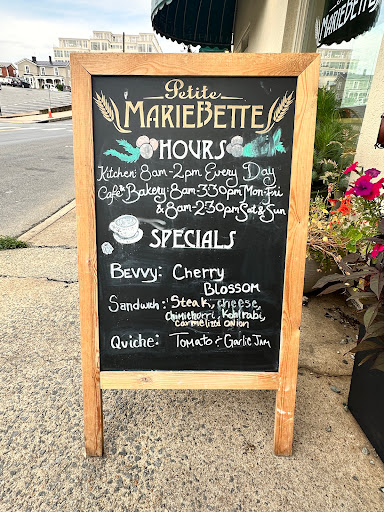 MARIEBETTE
Petite
MARIEBETTE
HOURS
Kitchen: 8am-2pm Every Day
Café & Bakery: 8am-3:30pm Mon-Fri
& 8am-2:30pm Sat & Sun
SPECIALS
Bevvy: Cherry
Blossom
Sandwich: Steak, cheese,
chimichurri, Kohlrabi,
caramelized onion
Quiche: Tomato & Garlic Jam